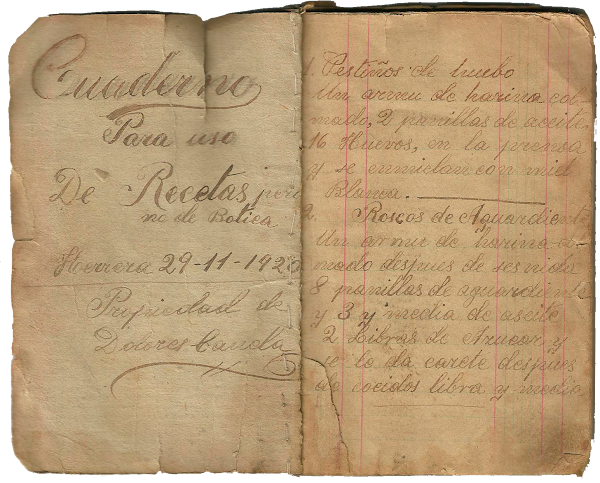 Cuaderno
Para uso
De Recetas pero
no de Botica
Herrera 29-11-1920
Propiedad de
Dolores Canela
1. Pestiños de huebo
Un armu de harina col-
mado, 2 panillas de aceite,
16 Huevos, en la prensa
y se enmielan con miel
Blanca.
2. Roscos de Aguardiente
Un armu de harina co-
mado despues de sernida
8 panillas de aguardiente
y 3 y media de aseite
2 Libras de Azucar y
se le da carete despues
de cocidos libra y media